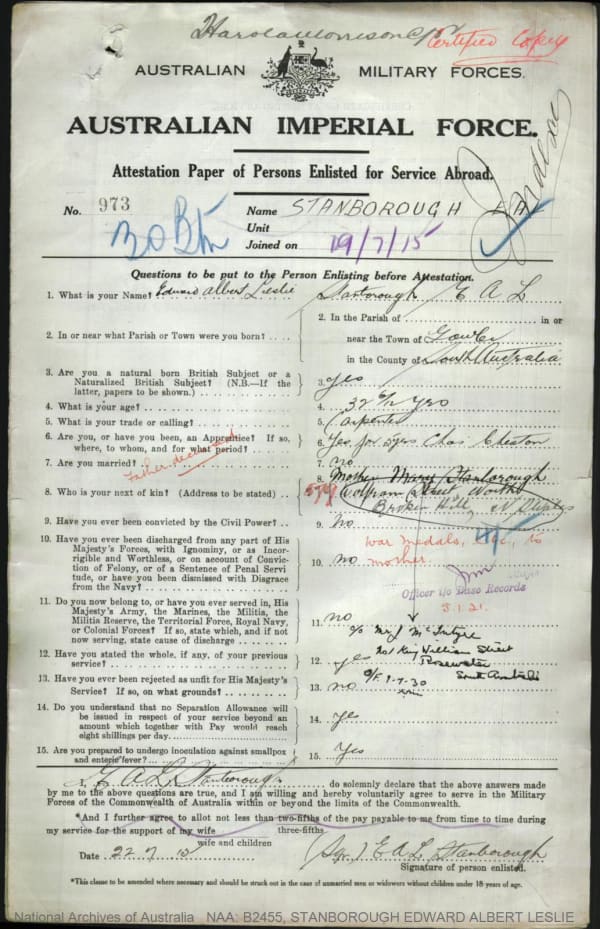 Certified Copy
AUSTRALIAN MILITARY FORCES.
AUSTRALIAN IMPERIAL FORCE.
Attestation Paper of Persons Enlisted for Service Abroad.
No. 973 Name STANBOROUGH E A L
30 Btn
Unit
Joined on 19/7/15
Questions to be put to the Person Enlisting before Attestation.
1. What is your Name? Edward Albert Leslie Stanborough E A L
2. In or near what Parish or Town were you born? . . . .
2. In the Parish of in or
near the Town of Gawler
in the County of South Australia
3. Are you a natural born British Subject or a
Naturalized British Subject? (N.B.—If the
latter, papers to be shown.)
3. Yes
4. What is your age?
4. 32 Yrs
5. What is your trade or calling?
5. Carpenter
6. Are you, or have you been, an Apprentice? If so,
where, to whom, and for what period?
6. Yes for 5 yrs Chas Cheston
7. Are you married?
7. no
Father deceased
8. Who is your next of kin? (Address to be stated)
8. Mother Mary Stanborough
Wolfram Street North
Broken Hill N S Wales
9. Have you ever been convicted by the Civil Power? . .
9. No
War medals, etc, to
mother.
10. Have you ever been discharged from any part of His
Majesty's Forces, with Ignominy, or as Incor-
rigible and Worthless, or on account of Convic-
tion of Felony, or of a Sentence of Penal Servi-
tude, or have you been dismissed with Disgrace
from the Navy?
10. no
Officer i/c Base Records
3.1.21.
11. Do you now belong to, or have you ever served in, His
Majesty's Army, the Marines, the Militia, the
Militia Reserve, the Territorial Force, Royal Navy,
or Colonial Forces? If so, state which, and if not
now serving, state cause of discharge
11. no
c/o Mr J McIntyre
King William Street
Rosewater
South Australia
12. Have you stated the whole, if any, of your previous
service?
12. yes
13. Have you ever been rejected as unfit for His Majesty's
Service? If so, on what grounds?
13. no
14. Do you understand that no Separation Allowance will
be issued in respect of your service beyond an
amount which together with Pay would reach
eight shillings per day.
14. yes
15. Are you prepared to undergo inoculation against smallpox
and enteric fever?
15. Yes
I, E A L Stanborough do solemnly declare that the above answers made
by me to the above questions are true, and I am willing and hereby voluntarily agree to serve in the Military
Forces of the Commonwealth of Australia within or beyond the limits of the Commonwealth.
*And I further agree to allot not less than two-fifths of the pay payable to me from time to time during
three-fifths
my service for the support of my wife
wife and children
Date 22 7 15 (Sgr.) E A L Stanborough
Signature of person enlisted.
*This clause to be amended where necessary and should be struck out in the case of unmarried men or widowers without children under 18 years of age.
National Archives of Australia NAA: B2455, STANBOROUGH EDWARD ALBERT LESLIE